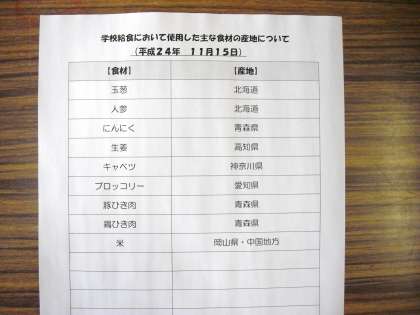 学校給食において使用した主な食材の産地について
（平成２４年　１１月１５日）
【食材】　【産地】
玉葱　北海道
人参　北海道
にんにく　青森県
生姜　高知県
キャベツ　神奈川県
ブロッコリー　愛知県
豚ひき肉　青森県
鶏ひき肉　青森県
米　岡山県・中国地方